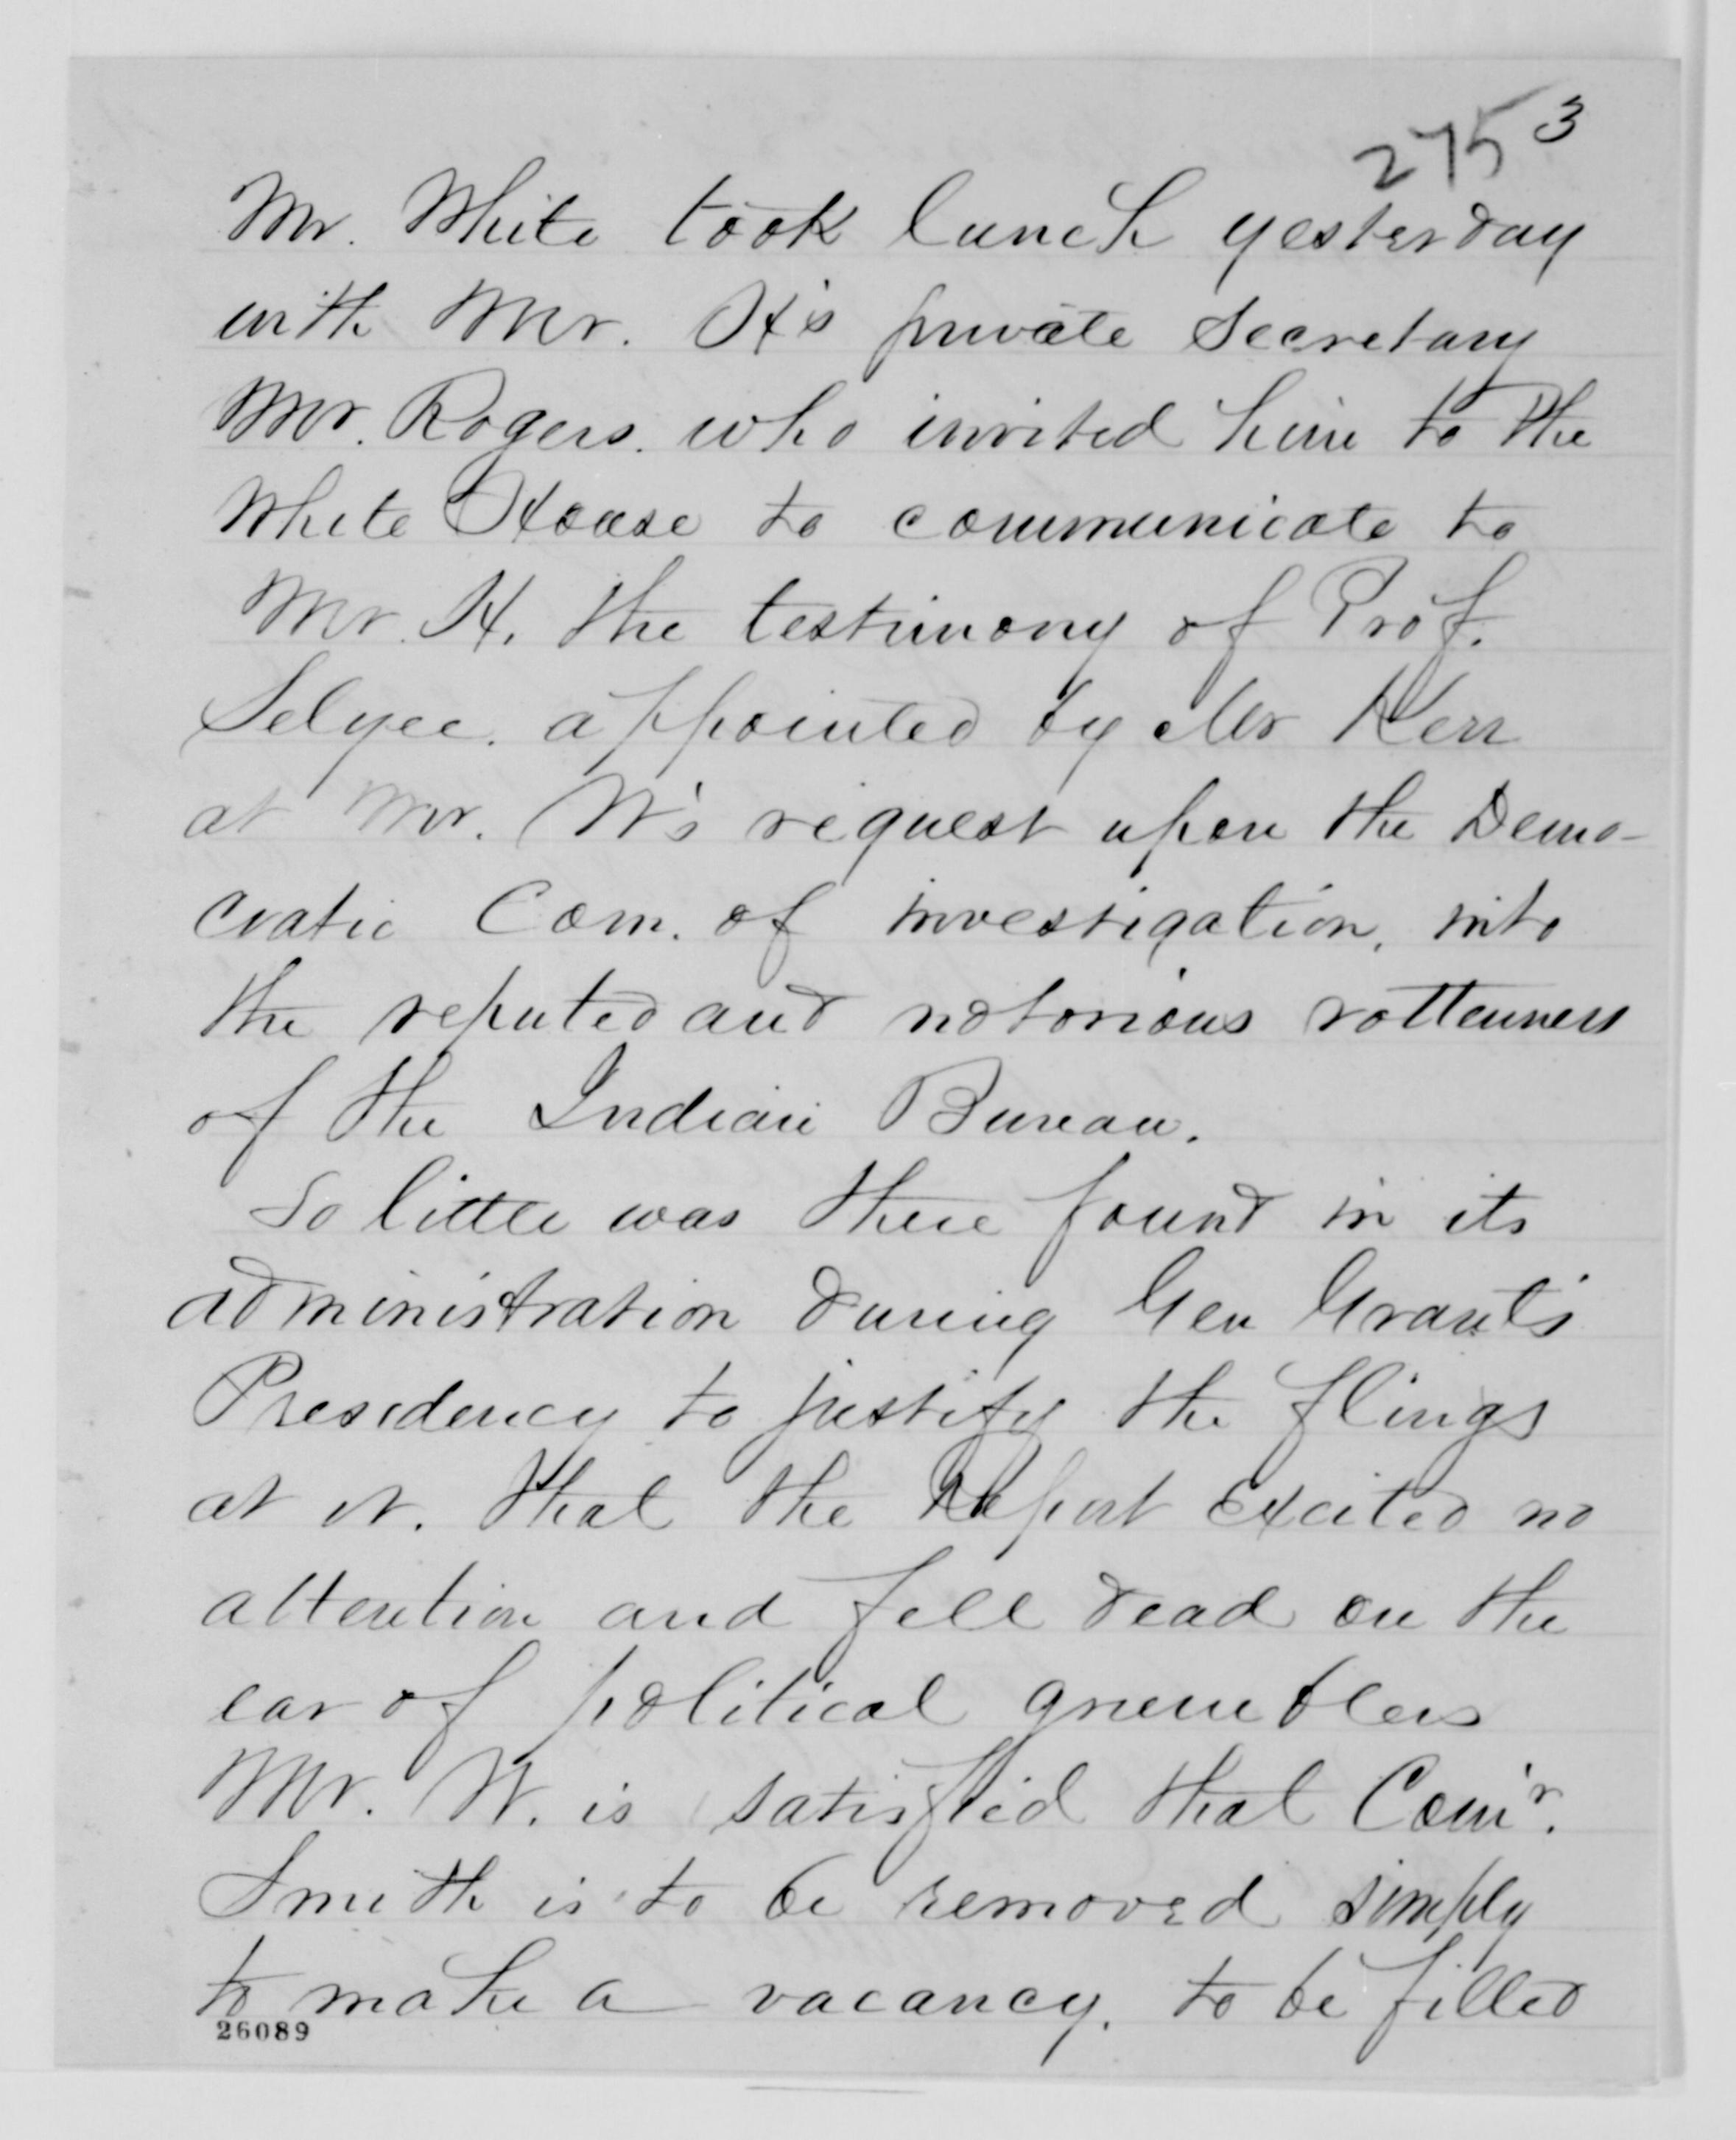 275 3
Mr. White took lunch yesterday
with Mr. H's private Secretary
Mr. Rogers. who invited him to the
White House to communicate to
Mr. H. the testimony of Prof.
Selyee. appointed by Mr Kerr
at Mr. W's request upon the Demo-
cratic Com. of investigation, into
the reputed and notorious rottenness
of the Indian Bureau.
So little was there found in its
administration during Gen Grant's
Presidency to justify the flings
at it. that the Report excited no
attention and fell dead on the
ear of political grumblers
Mr. W. is satisfied that Com'r.
Smith is to be removed simply
to make a vacancy. to be filled
26089